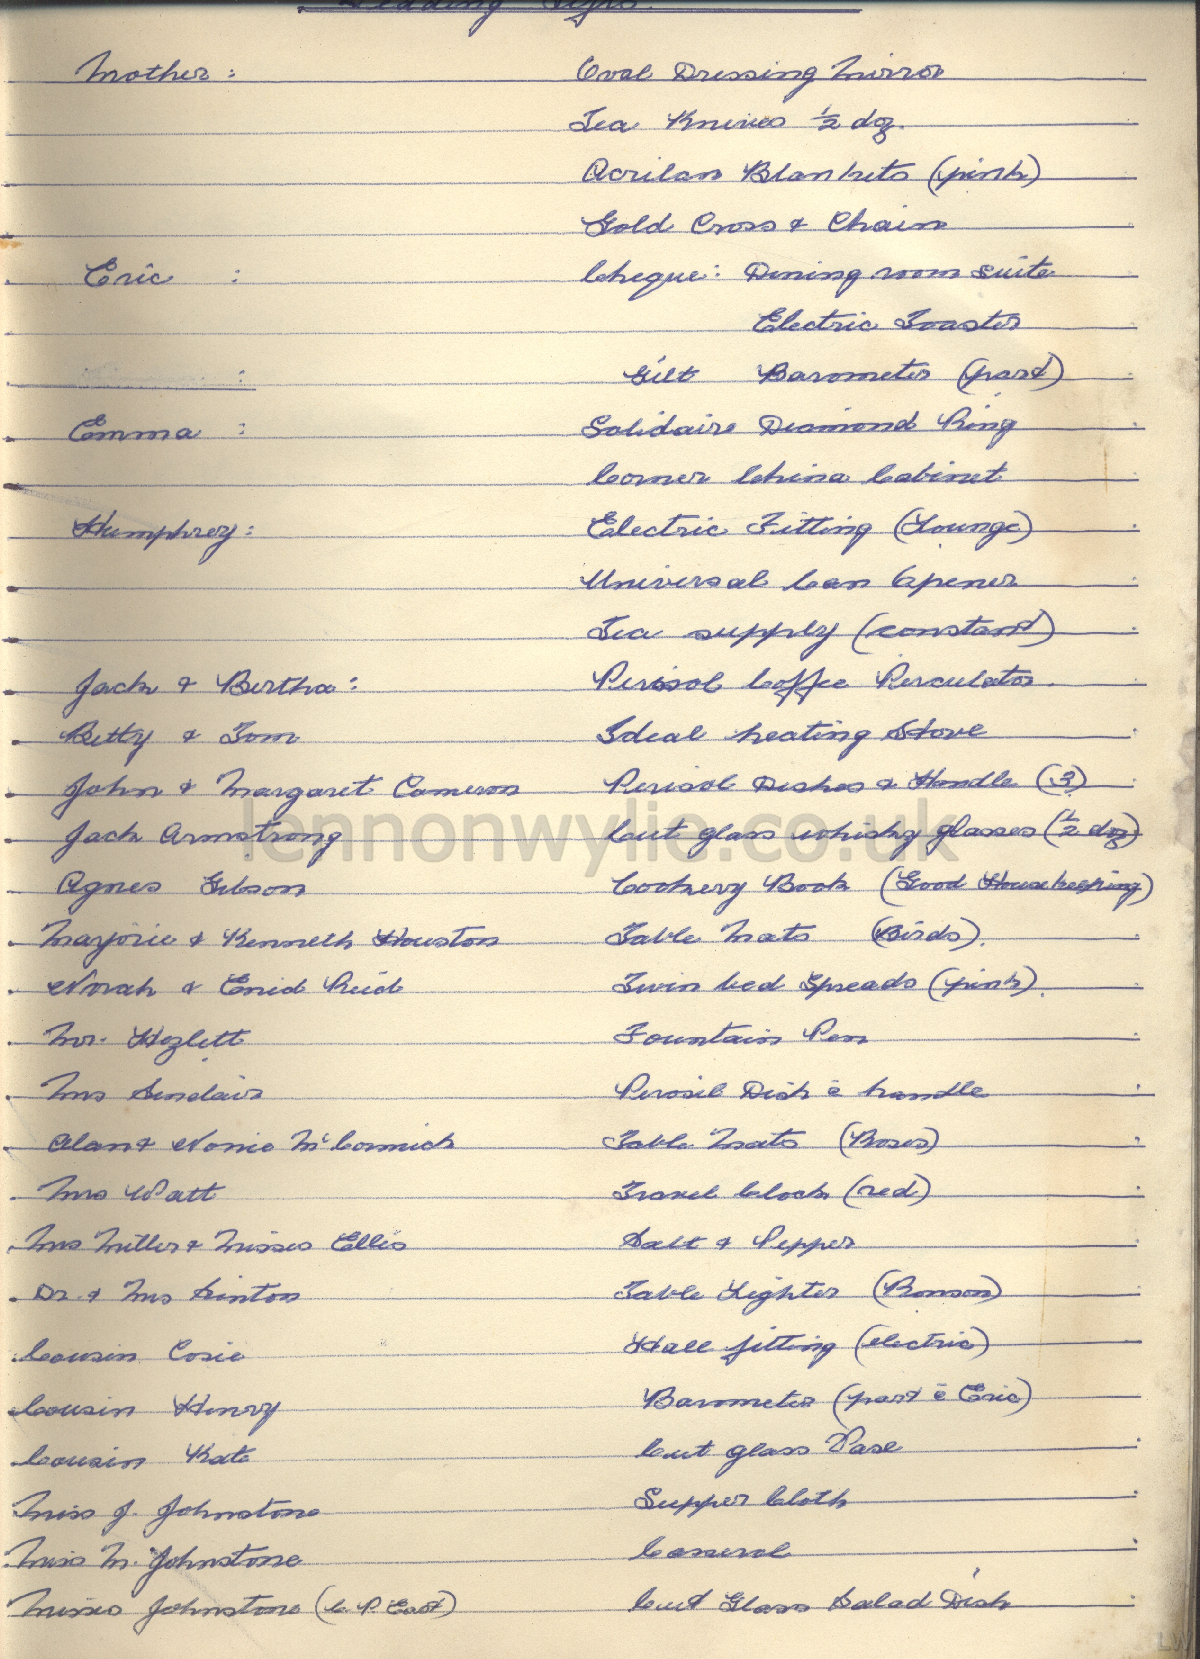 Wedding Gifts.
Mother : Oval Dressing Mirror
Tea Knives ½ dz.
Acrilan Blankets (pink)
Gold Cross & Chain
Eric : Cheque: Dining room suite
Electric Toaster
: Gilt Barometer (part)
Emma : Solidaire Diamond Ring
Corner China Cabinet
Humphrey : Electric Fitting (Lounge)
Universal Can Opener
Tea supply (constant)
Jack & Bertha : Perisol Coffee Perculator.
Betty & Tom Ideal heating Stove
John & Margaret Cameron Perisol Dishes & Handle (3)
Jack Armstrong Cut glass whisky glasses (½ doz)
Agnes Gibson Cookery Book (Good Housekeeping)
Marjorie & Kenneth Houston Table Mats (Birds).
Norah & Enid Reid Twin bed Spreads (pink).
Mr. Hezlett Fountain Pen
Mrs Sinclair Perosil Dish c̄ handle
Alan & Nonie McCormick Table Mats (Roses)
Mrs Watt Travel Clock (red)
Mrs Miller & Misses Ellis Salt & Pepper
Dr. & Mrs Sinton Table Lighter (Ronson)
Cousin Cosie Hall fitting (electric)
Cousin Henry Barometer (part c̄ Eric)
Cousin Kate Cut glass Vase
Miss J. Johnstone Supper Cloth
Miss M. Johnstone Casserol
Misses Johnstone (C. P. East) Cut Glass Salad Dish
lennonwylie.co.uk
LW